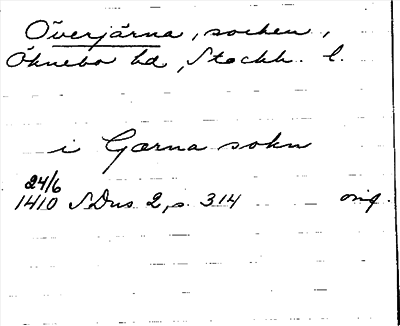 Överjärna, socken,
Öknebo hd, Stockh. l.
i Gærna sokn
24/6
1410 SDns 2, s. 314 orig.